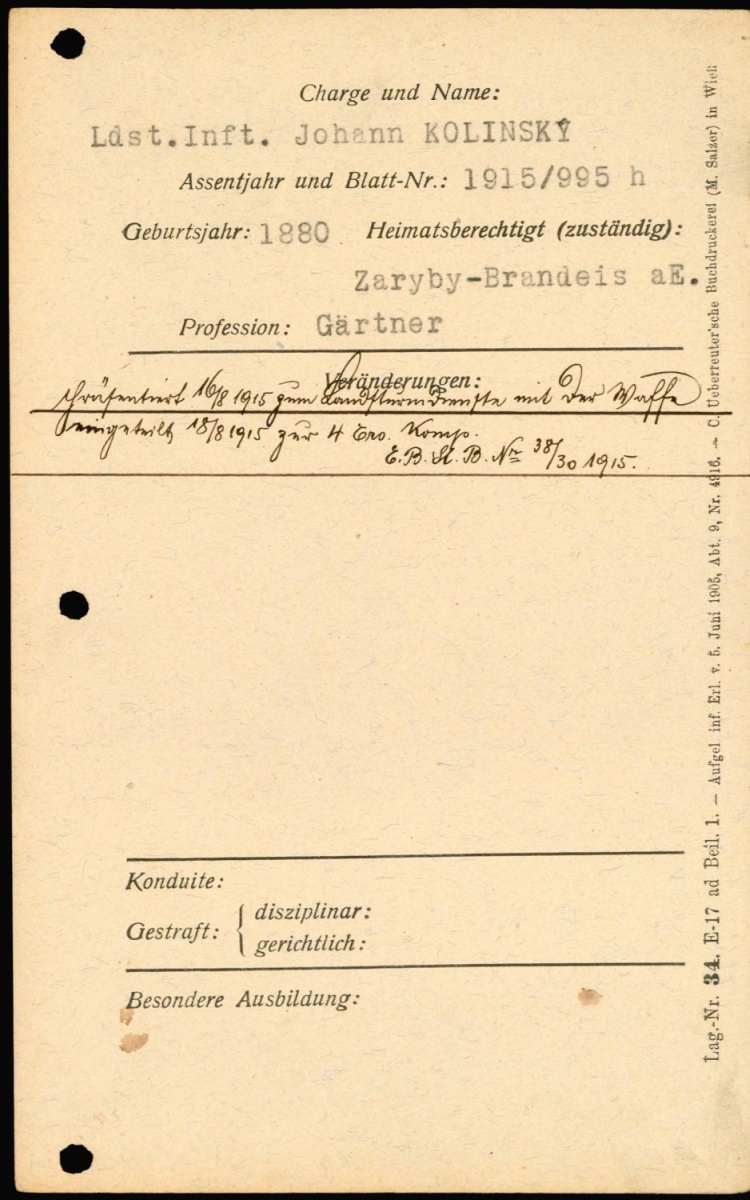 Charge und Name:
Ldst.Inft. Johann KOLINSKÝ
Assentjahr und Blatt-Nr.: 1915/995 h
Geburtsjahr: 1880 Heimatsberechtigt (zuständig):
Zaryby-Brandeis aE.
Profession: Gärtner
Veränderungen:
Präsentiert 16/8 1915 zum Landsturmdienste mit der Waffe
eingeteilt 18/8 1915 zur 4 Ers. Komp.
E.B.K.B. Nr 38/30 1915.
Konduite:
Gestraft: { disziplinar:
gerichtlich:
Besondere Ausbildung:
Lag.-Nr. 34. E-17 ad Beil. 1. — Aufgel inf. Erl. v. 5. Juni 1905, Abt. 9, Nr. 4916. — C. Ueberreuter'sche Buchdruckerei (M. Salzer) in Wien